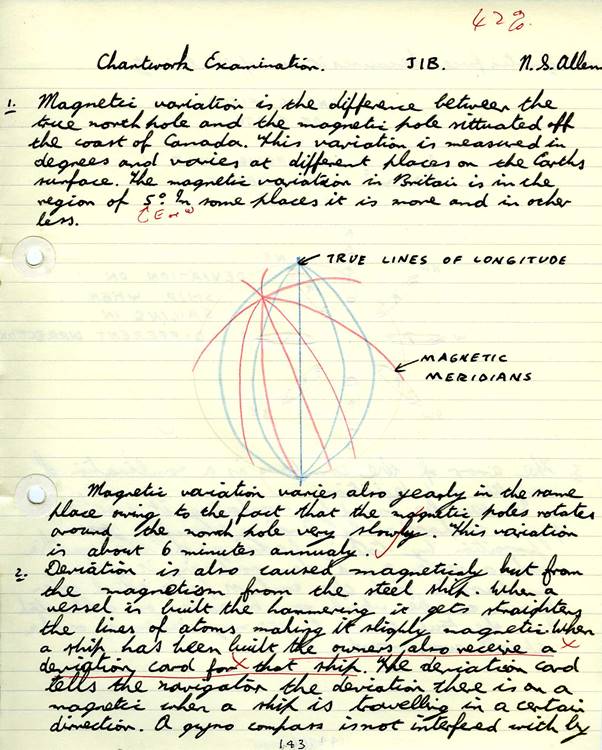 42%
Chartwork Examination. J1B. N.S. Allen
1. Magnetic variation is the difference between the
true north pole and the magnetic pole sittuated off
the coast of Canada. This variation is measured in
degrees and varies at different places on the Earths
surface. The magnetic variation in Britain is in the
region of 5°. In some places it is more and in other
less.
E or W
TRUE LINES OF LONGITUDE
MAGNETIC
MERIDIANS
Magnetic variation varies also yearly in the same
place owing to the fact that the magnetic poles rotates
around the north pole very slowly. This variation
is about 6 minutes annualy.
2. Deviation is also caused magneticaly but from
the magnetism from the steel ship. When a
vessel is built the hammering it gets straightens
the lines of atoms making it slighly magnetic. When
a ship has been built the owners also receive a
deviation card for that ship. The deviation card
tells the navigator the deviation there is on a
magnetic when a ship is travelling in a certain
direction. A gyro compass is not interfeed with by
143